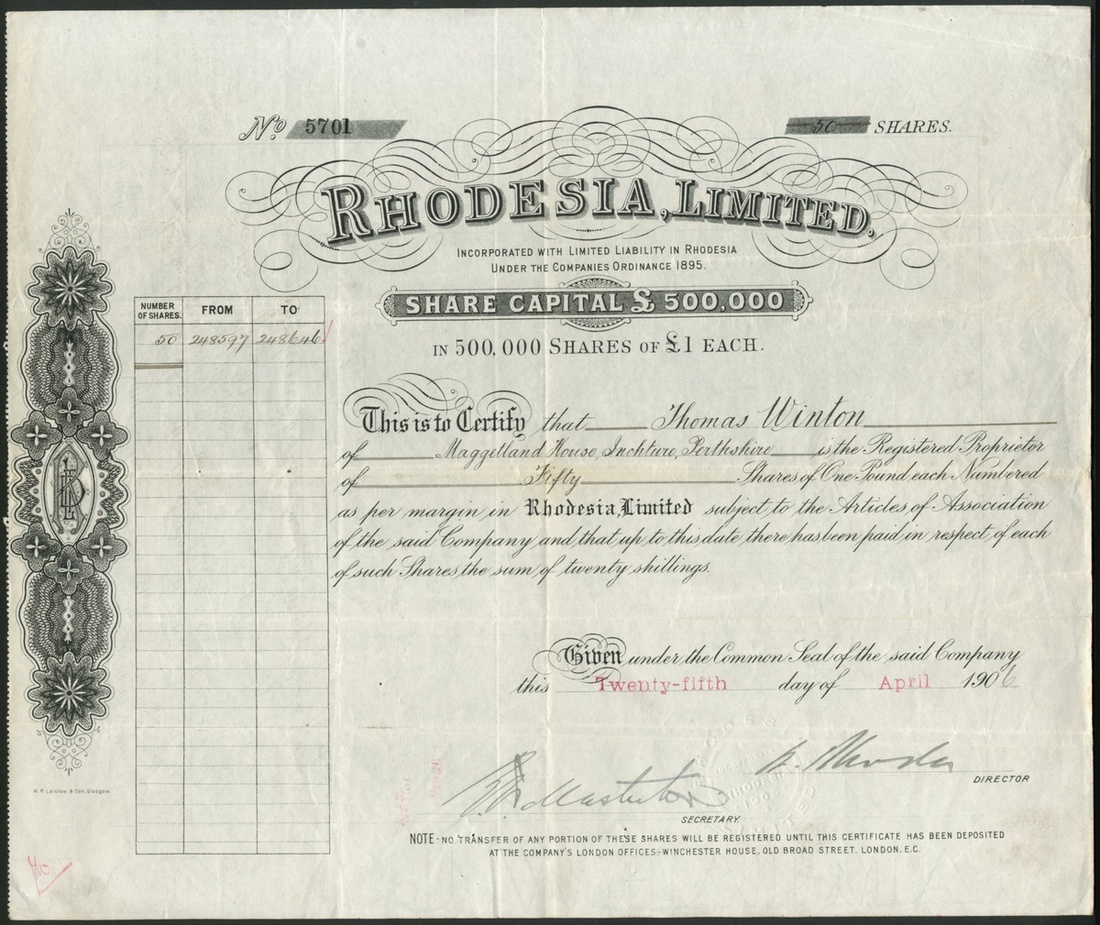 No. 5701
50 SHARES.
RHODESIA, LIMITED.
INCORPORATED WITH LIMITED LIABILITY IN RHODESIA
UNDER THE COMPANIES ORDINANCE 1895.
SHARE CAPITAL £ 500,000
IN 500,000 SHARES OF £1 EACH.
NUMBER OF SHARES. FROM TO
50 248597 248646
This is to Certify that Thomas Winton
of Maggetland House, Inchture, Perthshire is the Registered Proprietor
of Fifty Shares of One Pound each Numbered
as per margin in Rhodesia, Limited subject to the Articles of Association
of the said Company and that up to this date there has been paid in respect of each
of such Shares the sum of twenty shillings.
Given under the Common Seal of the said Company
this Twenty-fifth day of April 1906
DIRECTOR
SECRETARY.
NOTE - NO TRANSFER OF ANY PORTION OF THESE SHARES WILL BE REGISTERED UNTIL THIS CERTIFICATE HAS BEEN DEPOSITED
AT THE COMPANY'S LONDON OFFICES-WINCHESTER HOUSE, OLD BROAD STREET. LONDON. E.C.